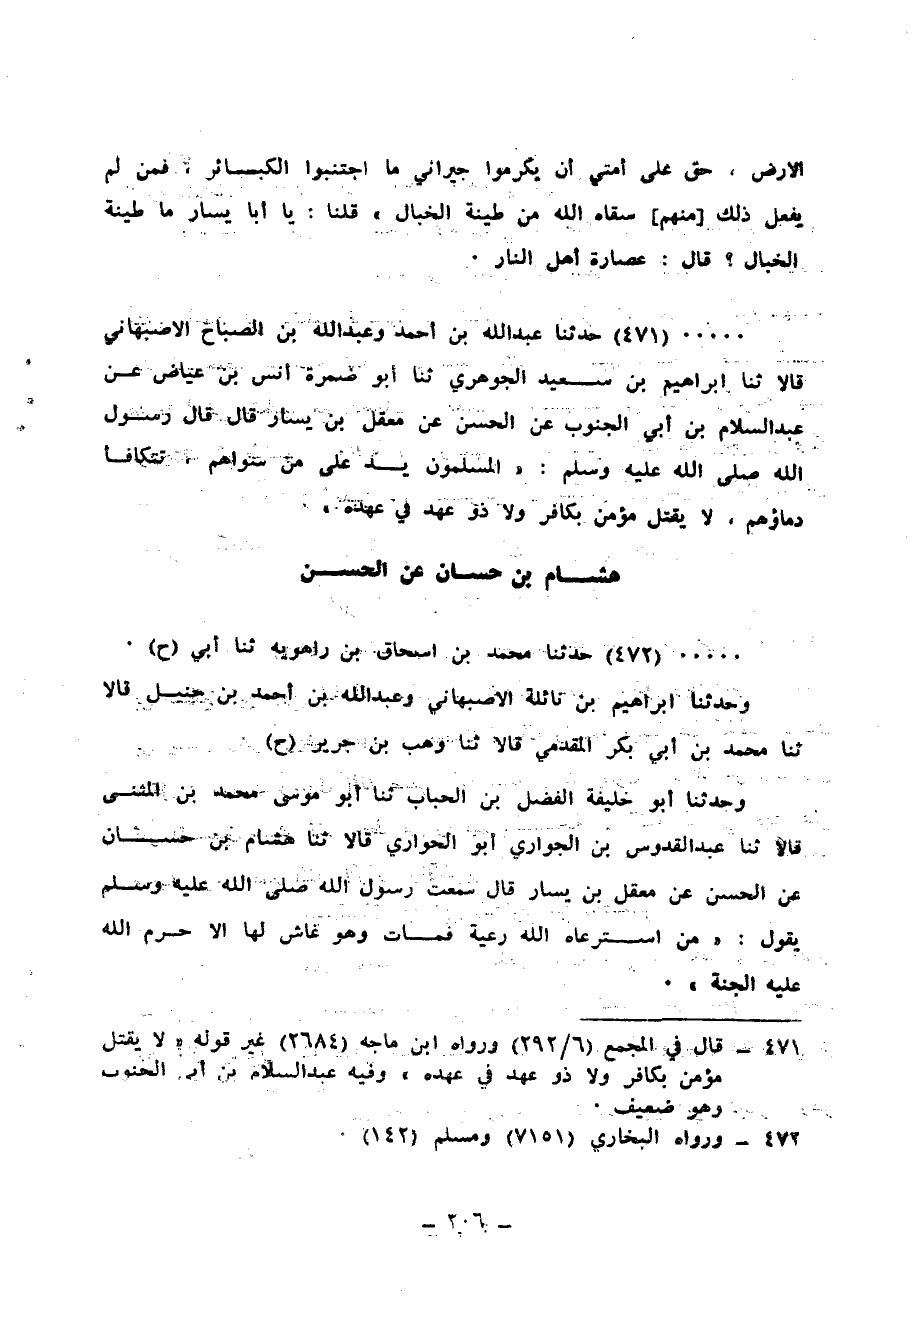 الارض ، حق على أمتي أن يكرموا جيراني ما اجتنبوا الكبــائر ، فمن لم
يفعل ذلك [منهم] سقاه الله من طينة الخبال » قلنا : يا أبا يسار ما طينة
الخبال ؟ قال : عصارة أهل النار ٠
٠٠٠٠٠ (٤٧١) حدثنا عبدالله بن أحمد وعبدالله بن الصباح الاصبهاني
قالا ثنا ابراهيم بن ســعيد الجوهري ثنا أبو ضمرة أنس بن عياض عــن
عبدالسلام بن أبي الجنوب عن الحسن عن معقل بن يسار قال قال رسـول
الله صلى الله عليه وسلم : « المسلمون يــد على من سواهم ، تتكافـأ
دماؤهم ، لا يقتل مؤمن بكافر ولا ذو عهد في عهده » ٠
هشــام بن حســان عن الحســن
٠٠٠٠٠ (٤٧٢) حدثنا محمد بن اسحاق بن راهويه ثنا أبي (ح) ٠
وحدثنا ابراهيم بن نائلة الاصبهاني وعبدالله بن أحمد بن حنبـل قالا
ثنا محمد بن أبي بكر المقدمي قالا ثنا وهب بن جرير (ح) ٠
وحدثنا أبو خليفة الفضل بن الحباب ثنا أبو موسى محمد بن المثنـى
قالا ثنا عبدالقدوس بن الحواري أبو الحواري قالا ثنا هشام بن حســان
عن الحسن عن معقل بن يسار قال سمعت رسول الله صلى الله عليه وسـلم
يقول : « من اســترعاه الله رعية فمــات وهو غاش لها الا حـرم الله
عليه الجنة » ٠
٤٧١ ـ قال في المجمع (٢٩٢/٦) ورواه ابن ماجه (٢٦٨٤) غير قوله « لا يقتل
مؤمن بكافر ولا ذو عهد في عهده » وفيه عبدالسلام بن أبي الجنوب
وهو ضعيف ٠
٤٧٢ ـ ورواه البخاري (٧١٥١) ومسلم (١٤٢) ٠
ـ ٢٠٦ ـ